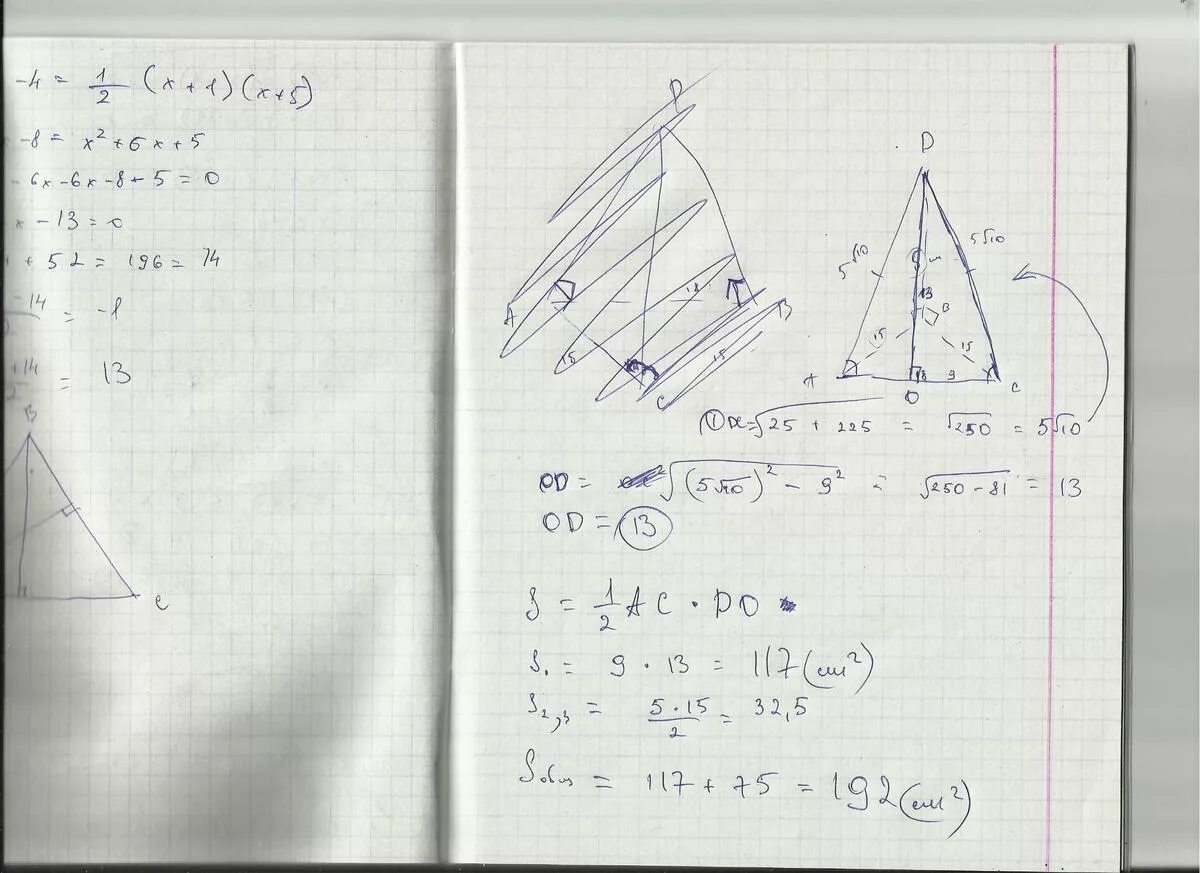 -4 = 1/2 (x + 1)(x + 5)
-8 = x² + 6x + 5
6x - 6x - 8 + 5 = 0
x - 13 = 0
+ 52 = 196 = 14
-14 = -1
+14 = 13
B
C
D
A
B
C
15
18
15
D
5√10
5√10
13
B
15
15
A
9
O
C
① DC = √25 + 225 = √250 = 5√10
OD = √(5√10)² - 9² = √250 - 81 = 13
OD = 13
S = 1/2 AC · DO
S₁ = 9 · 13 = 117 (см²)
S₂,₃ = 5·15/2 = 32,5
Sобщ = 117 + 75 = 192 (см²)